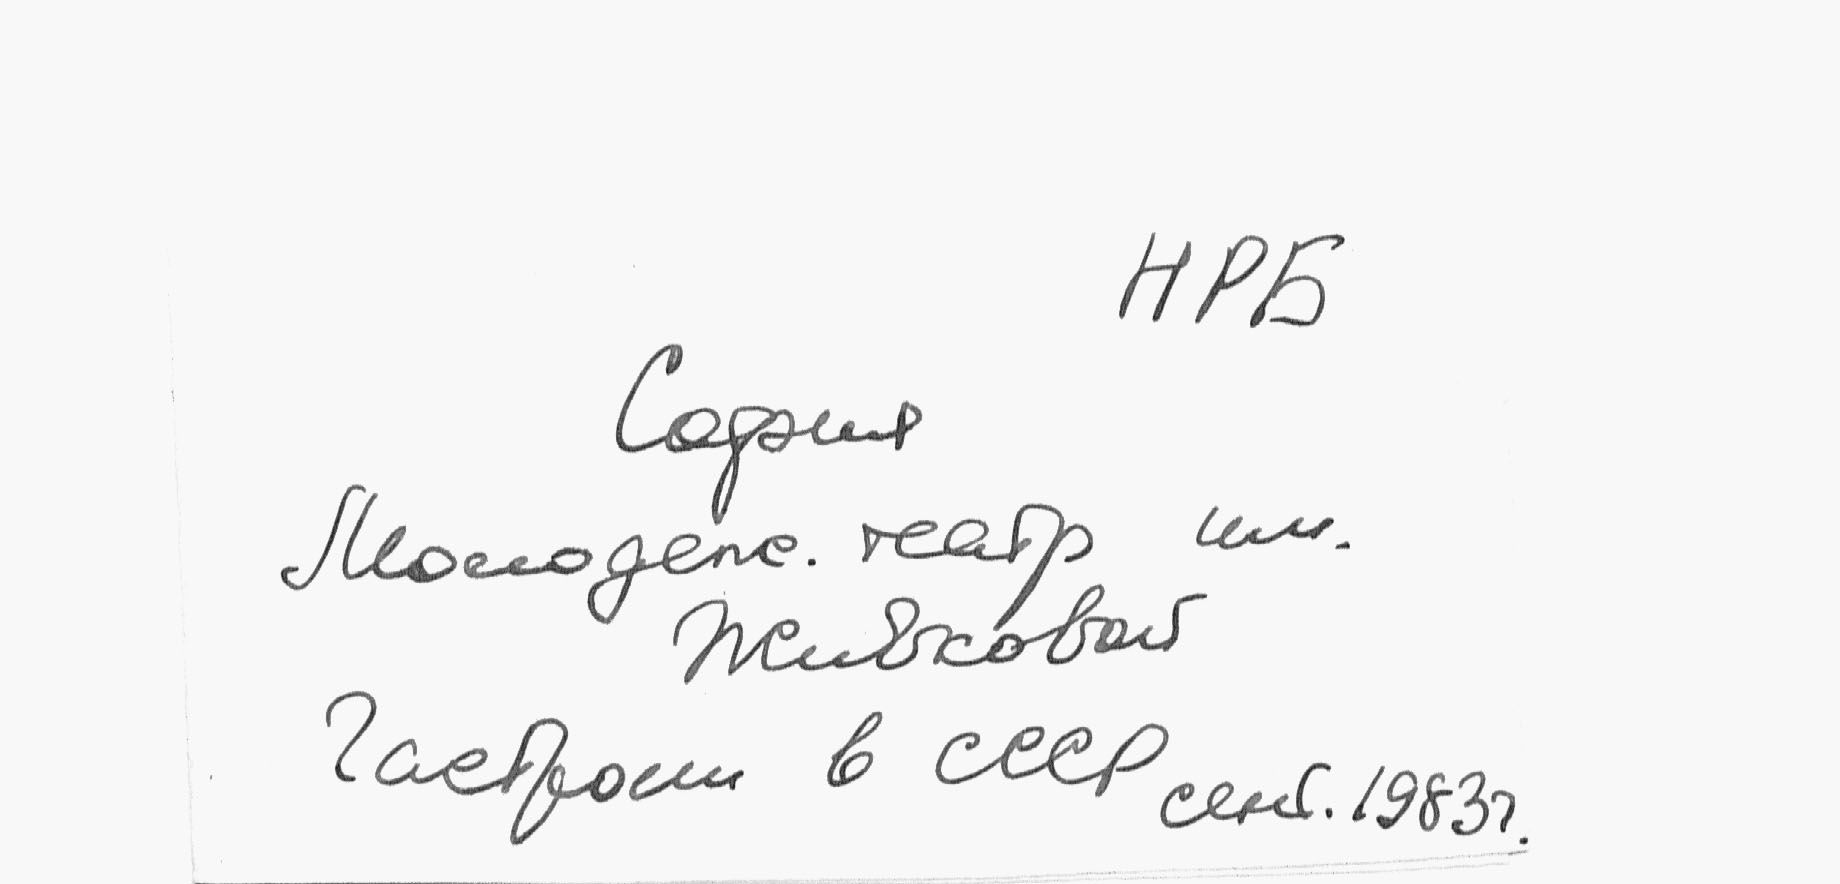 НРБ
София
Молодежн. театр им.
Живковой
Гастроли в СССР сент. 1983г.